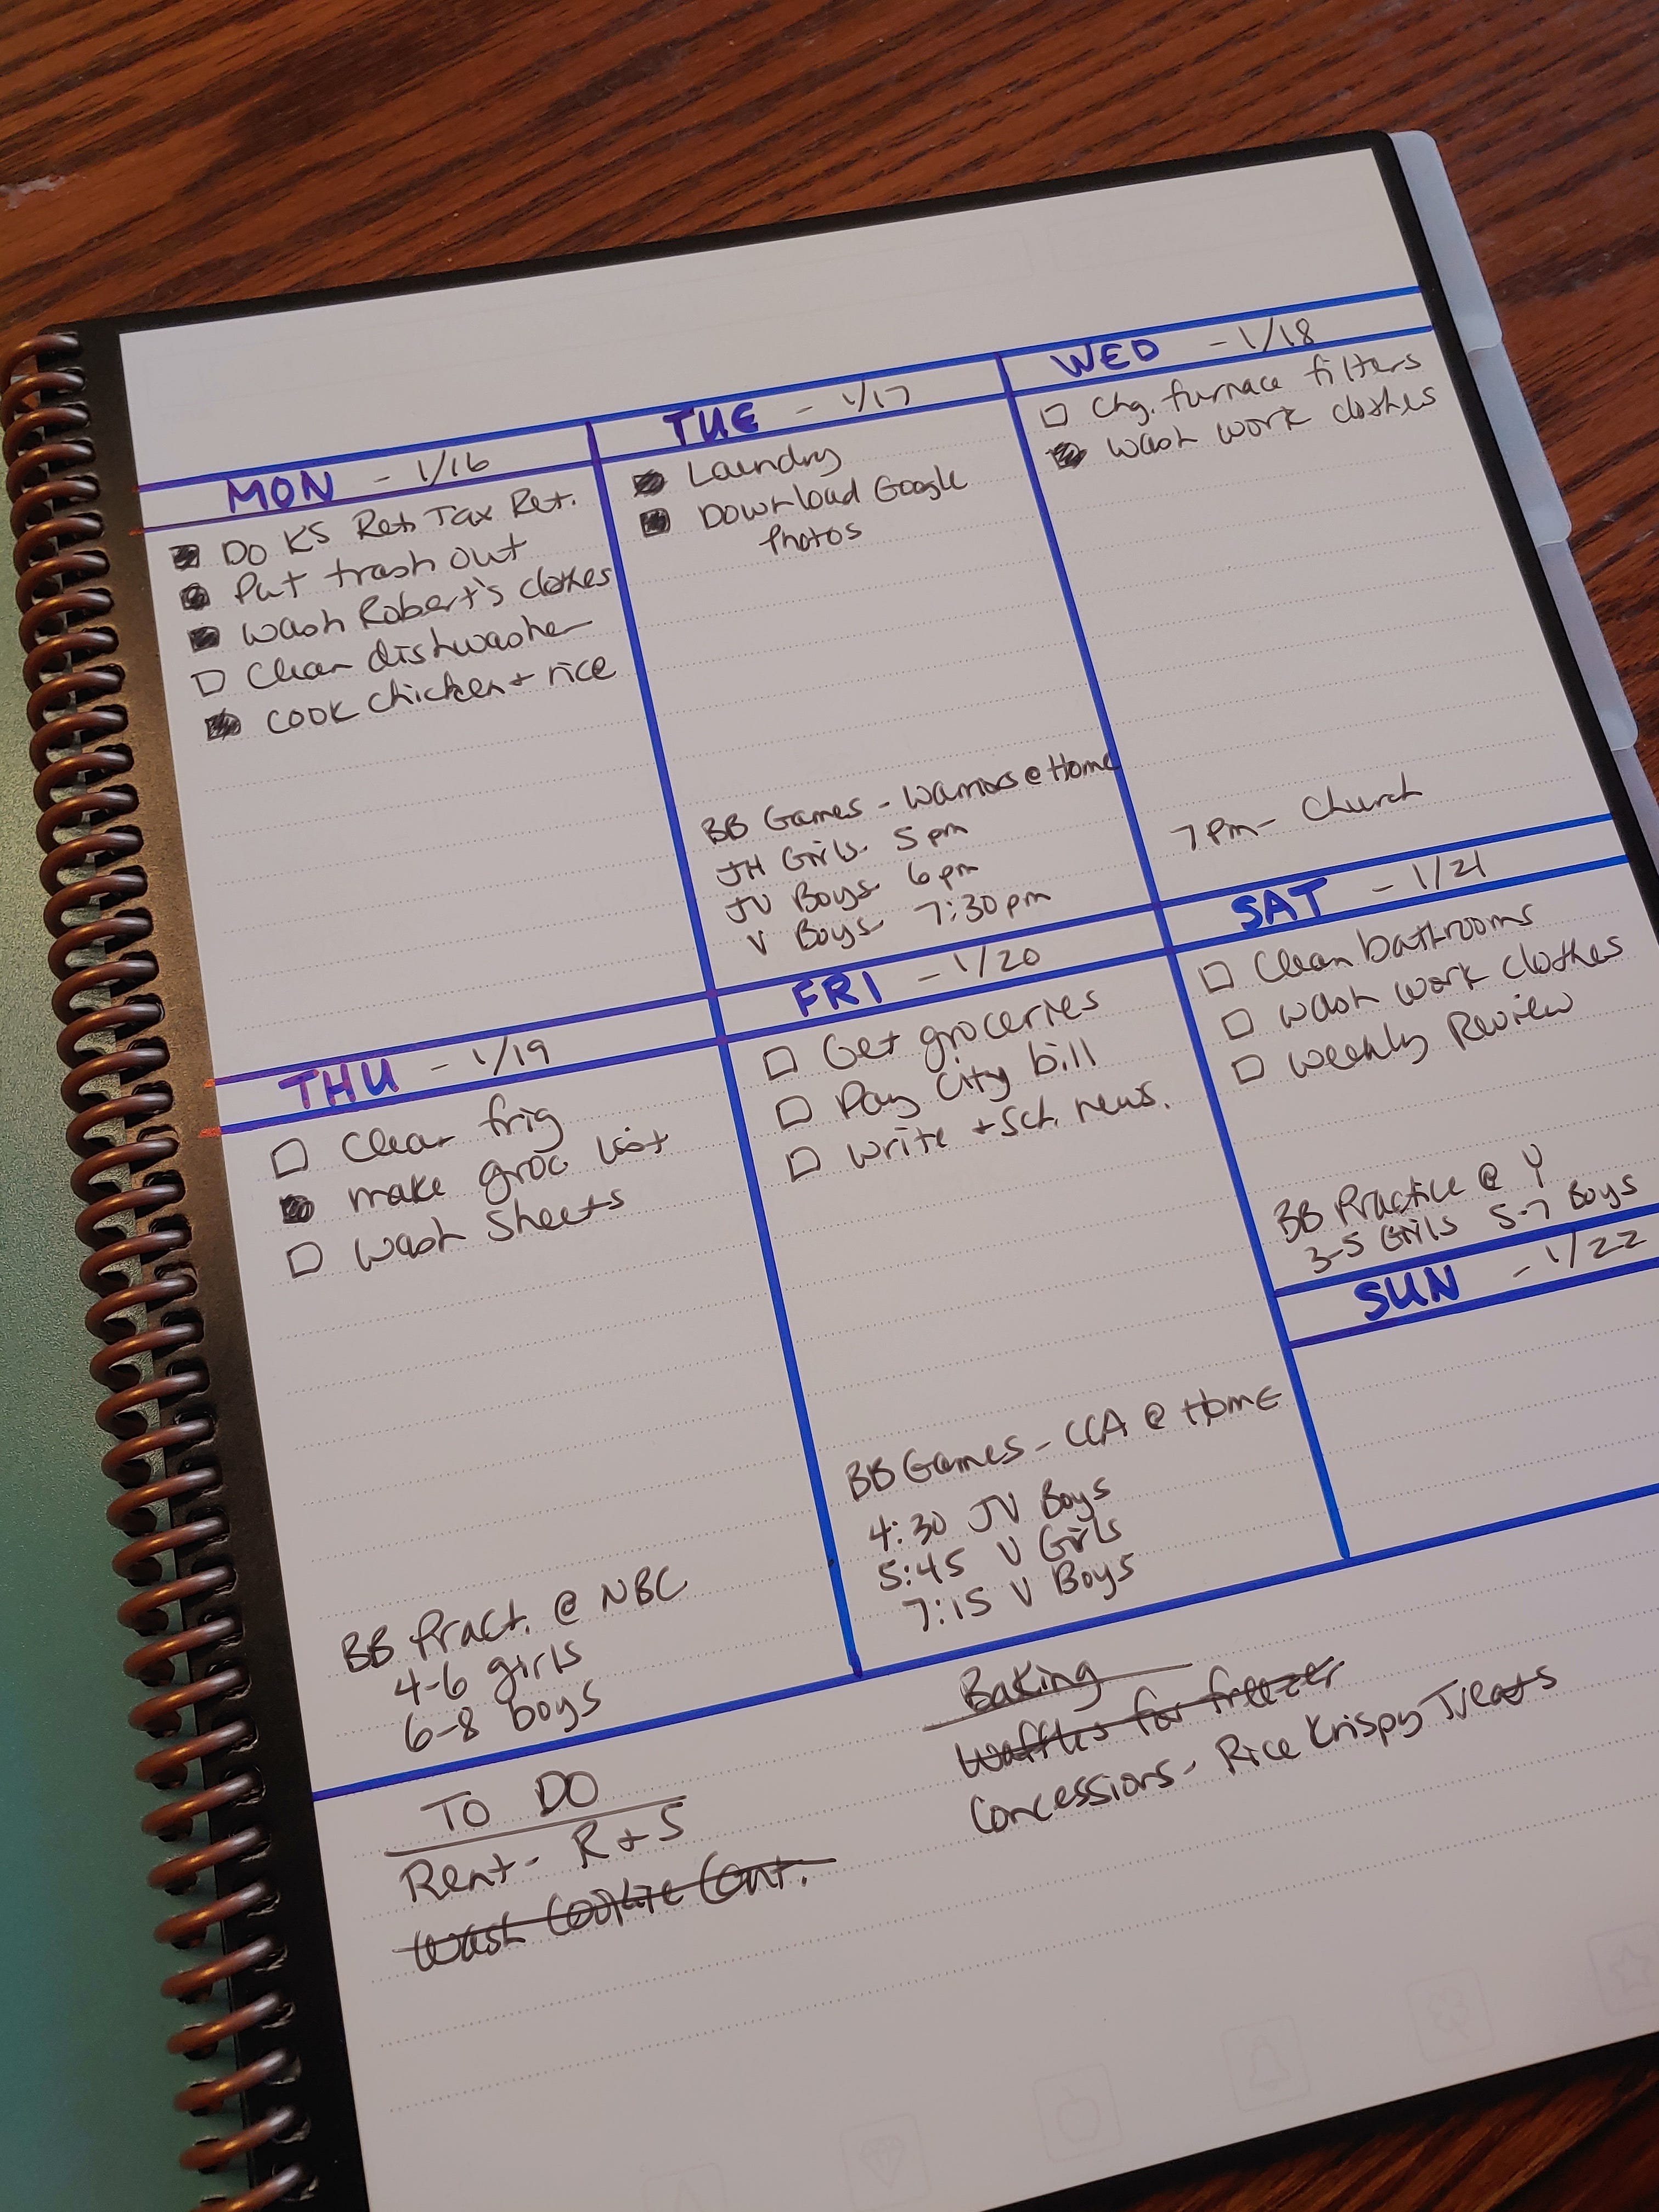 MON - 1/16
Do KS Ret Tax Ret.
Put trash out
Wash Robert's clothes
Clean dishwasher
Cook chicken + rice
TUE - 1/17
Laundry
Download Google
Photos
BB Games - Warriors @ Home
JH Girls- 5 pm
JV Boys- 6 pm
V Boys- 7:30 pm
WED - 1/18
Chg. furnace filters
Wash work clothes
7 pm - Church
THU - 1/19
Clean frig
make groc list
Wash Sheets
BB Pract. @ NBC
4-6 girls
6-8 boys
FRI - 1/20
Get groceries
Pay City bill
Write + Sch. news.
BB Games - CCA @ Home
4:30 JV Boys
5:45 V Girls
7:15 V Boys
SAT - 1/21
Clean bathrooms
Wash work clothes
Weekly Review
BB Practice @ Y
3-5 Girls 5-7 Boys
SUN - 1/22
TO DO
Rent - R + S
Wash Cookie Cont.
Baking
Waffles for freezer
Concessions - Rice Krispy Treats